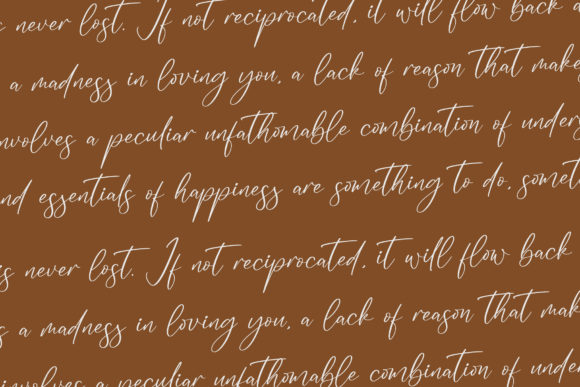 s never lost. If not reciprocated, it will flow back a
a madness in loving you, a lack of reason that make
involves a peculiar unfathomable combination of unders
nd essentials of happiness are something to do, somet
is never lost. If not reciprocated, it will flow back
s a madness in loving you, a lack of reason that mak
involves a peculiar unfathomable combination of under